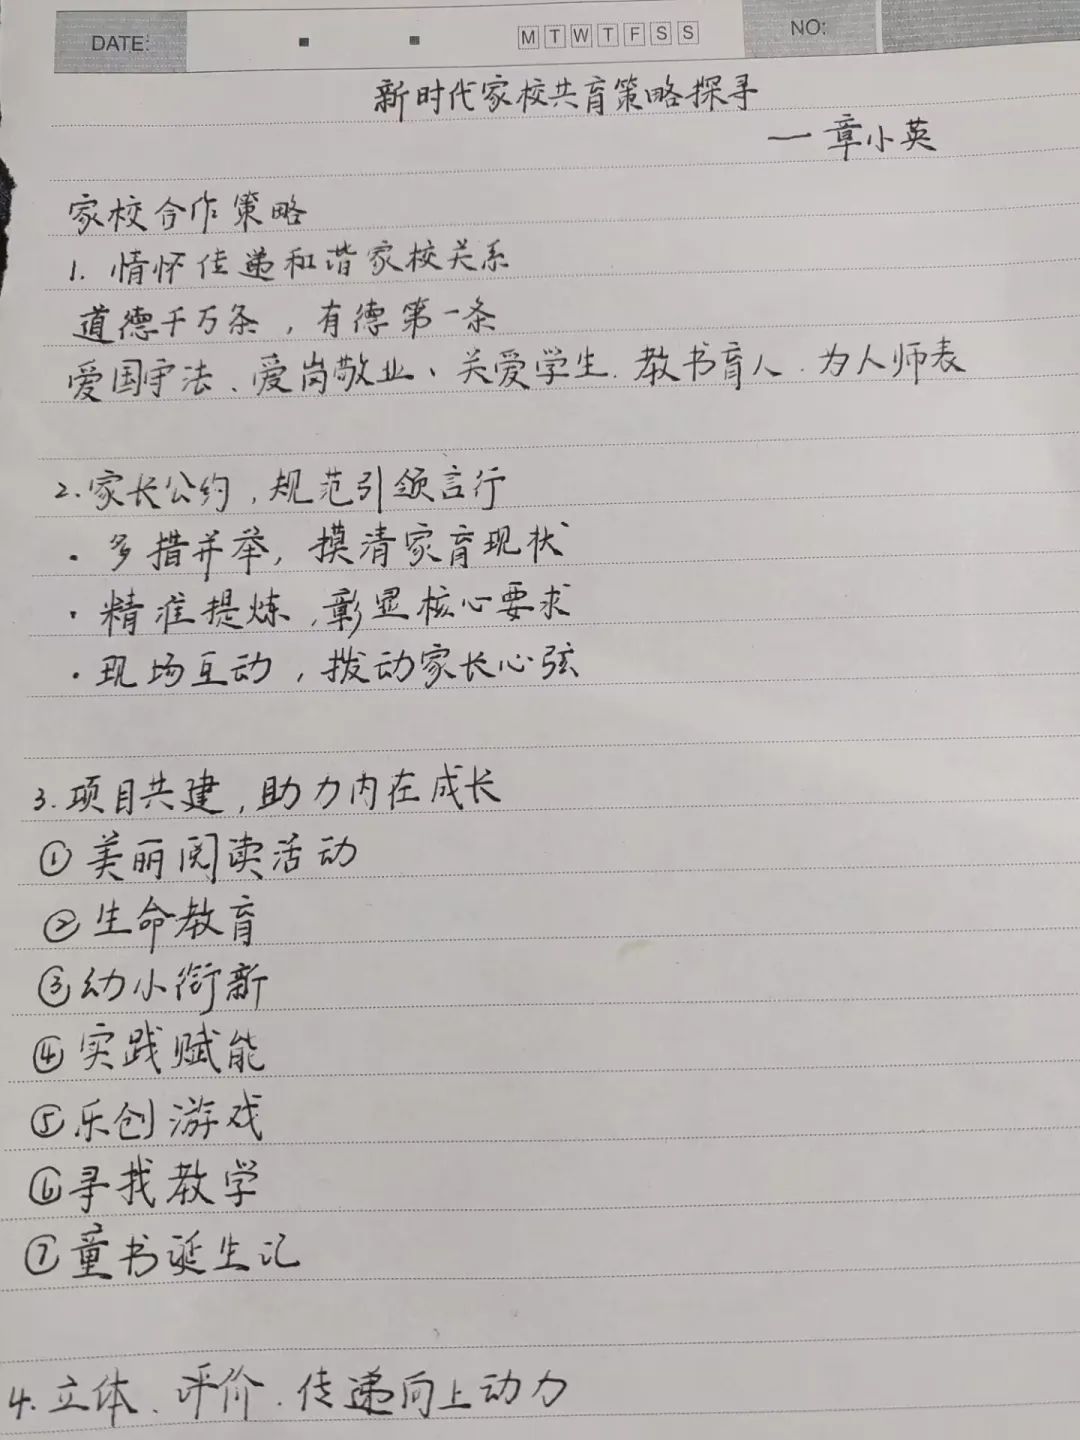 DATE: M T W T F S S NO:
新时代家校共育策略探寻
一 章小英
家校合作策略
1. 情怀传递和谐家校关系
道德千万条，有德第一条
爱国守法、爱岗敬业、关爱学生、教书育人、为人师表
2. 家长公约，规范引领言行
· 多措并举，摸清家育现状
· 精准提炼，彰显核心要求
· 现场互动，拨动家长心弦
3. 项目共建，助力内在成长
① 美丽阅读活动
② 生命教育
③ 幼小衔新
④ 实践赋能
⑤ 乐创游戏
⑥ 寻找教学
⑦ 童书诞生记
4. 立体、评价、传递向上动力